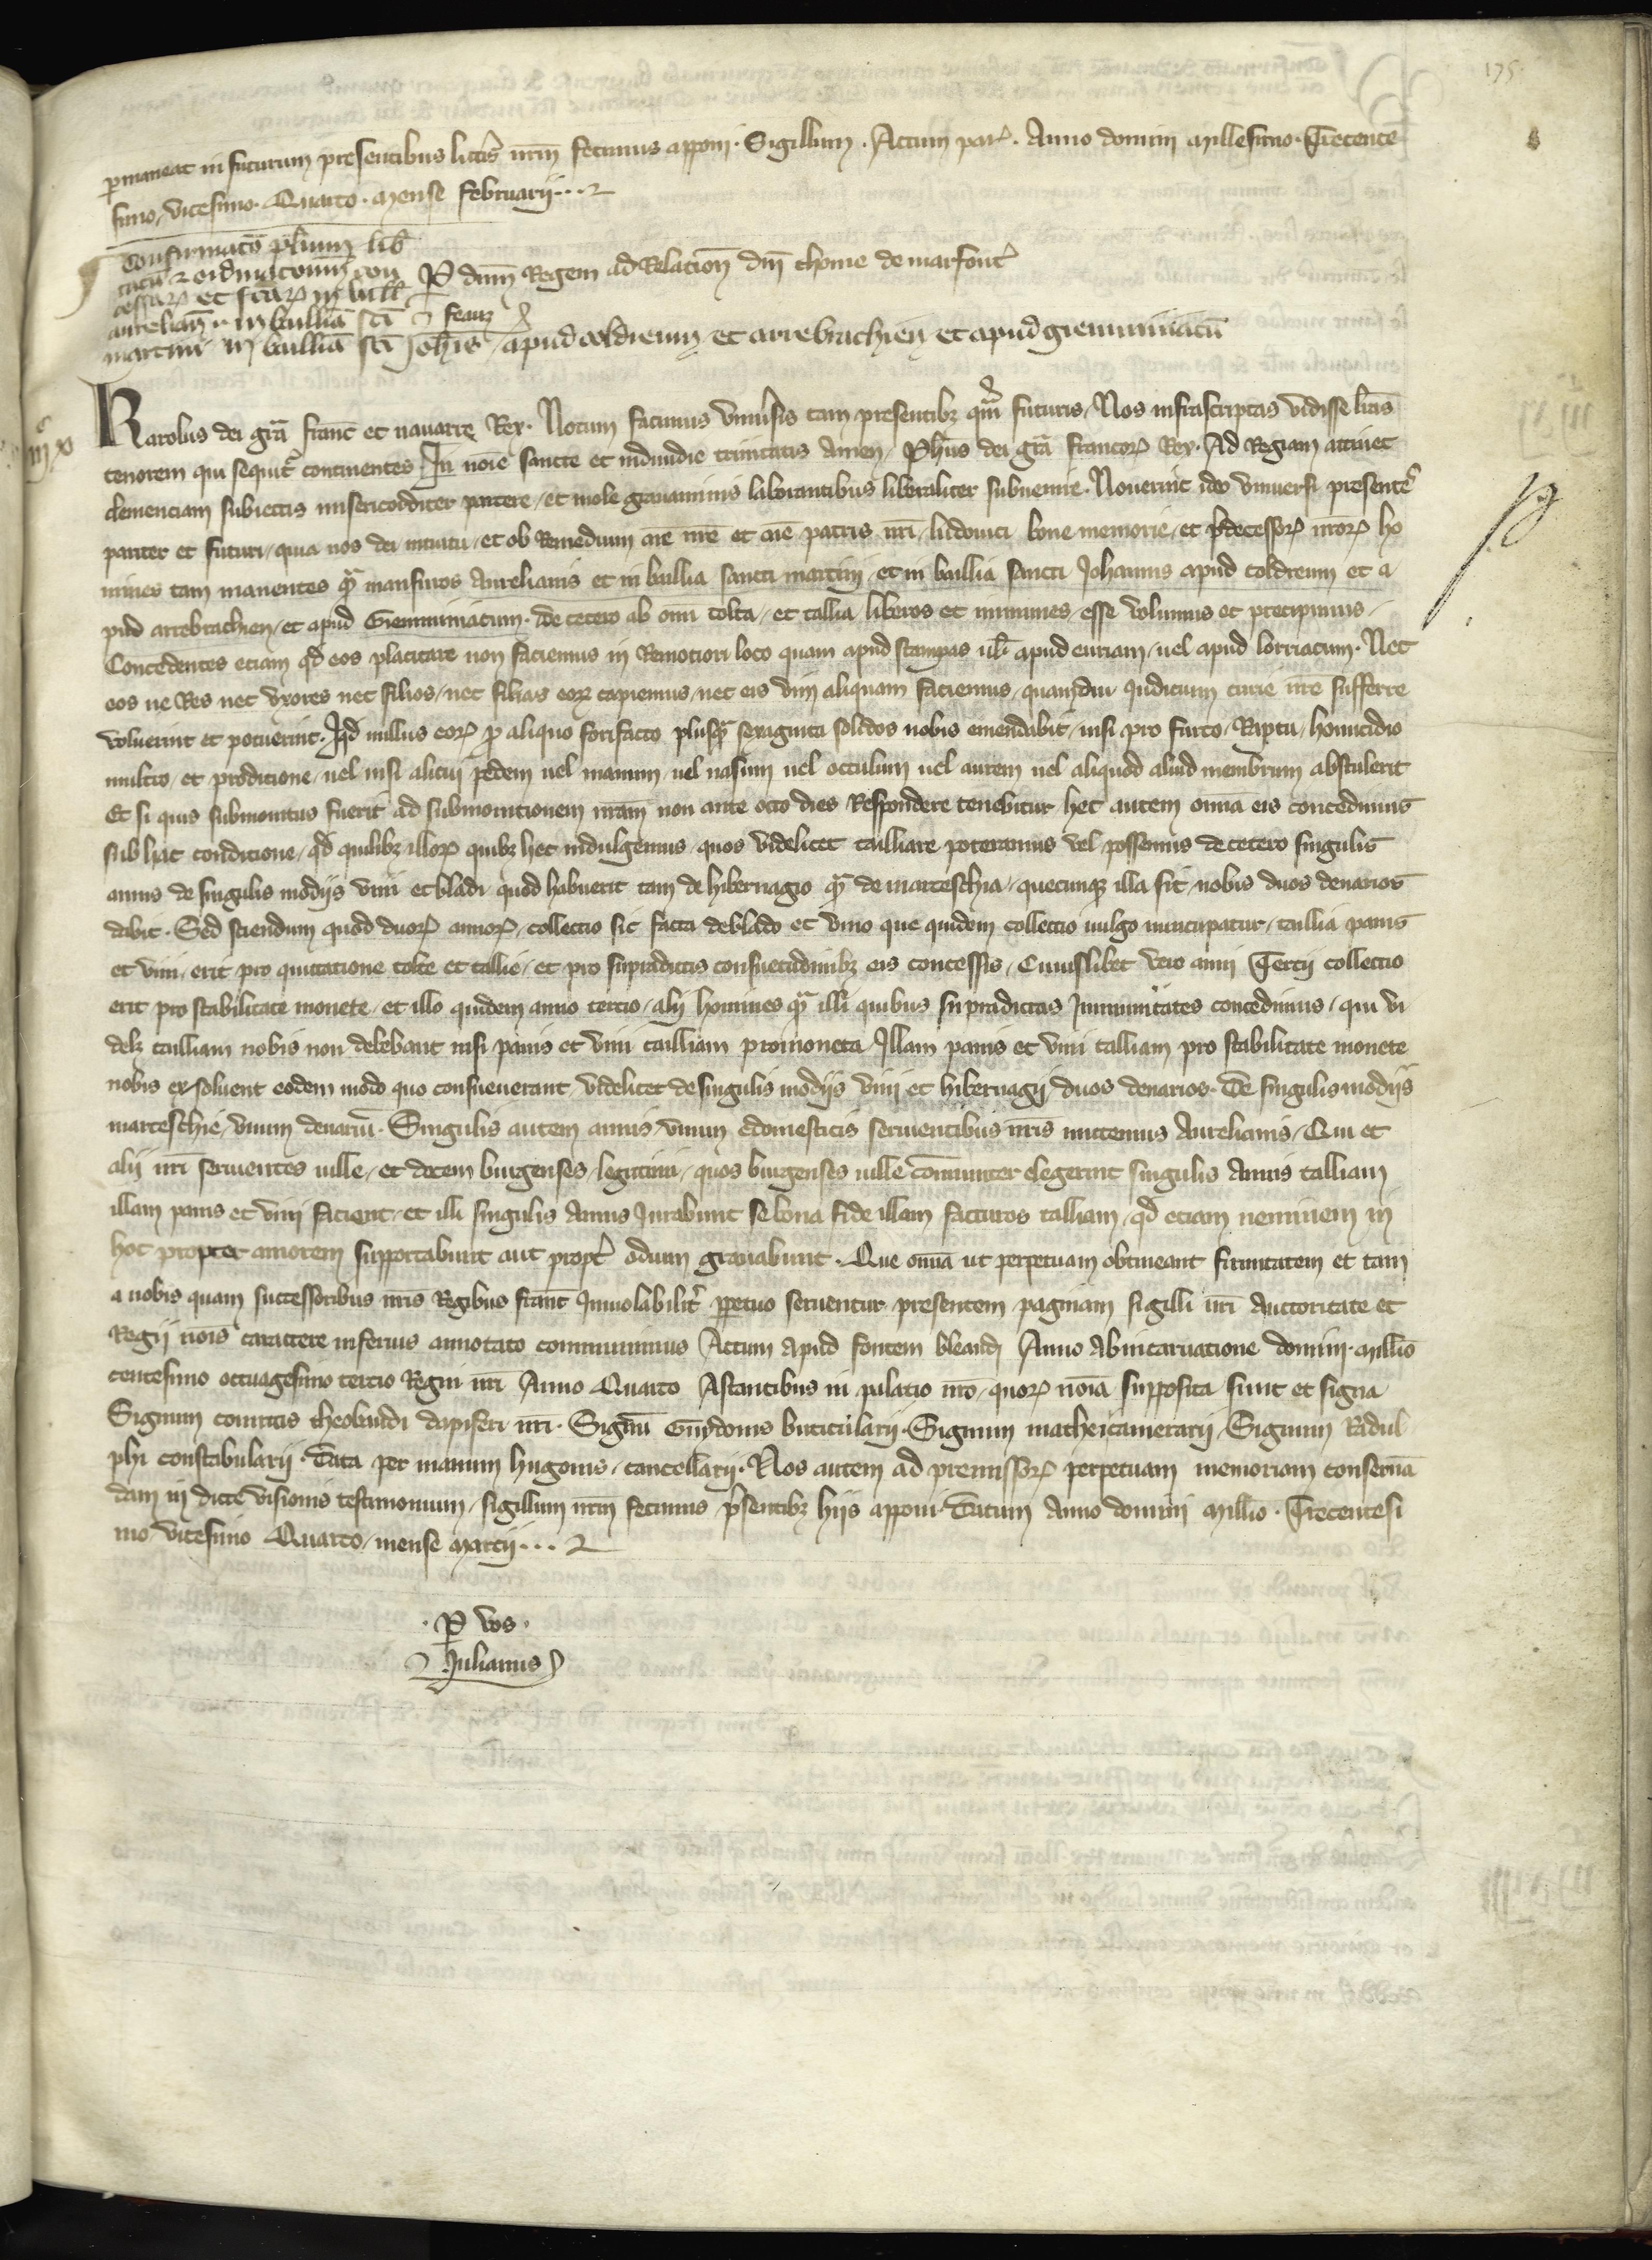 175.
permaneat in futurum presentibus litt̃is nr̃m fecimus apponi. Sigillum. Actum par̃. Anno domini Millesimo. Trecente
simo, vicesimo. Quarto. mense februarij...
Confirmacõ p̃lium lib̃
tatũ et ordinacionũ con
cessar̃ et fc̃ar̃ in ball̃
aurelian̄ in baillia sc̃i
martini in baillia sc̃i Joh̃is apud coldreum et arrebrachien et apud gieminiacũ
P dñm Regem ad Relacion̄ dñi thome de marfont̃
feauz
Karolus dei gr̃a franc̃ et nauarre Rex. Notum facimus vniũsis tam presentibꝫ qm̃ futuris, Nos infrascriptas vidisse lr̃as
tenorem qui sequit̃ continentes. In noĩe sancte et indiuidue trinitatis amen. Ph̃us dei gr̃a francoꝝ Rex. Ad Regiam attinet
clemenciam subiectis misericorditer parcere, et mole grauaminis laborantibus liberaliter subuenire. Nouerint ideo vniuersi presentẽs
pariter et futuri, quia nos dei intuitu, et ob Remedium aĩe nr̃e et aĩe patris nr̃i, ludouici bone memorie, et p̃decessoꝝ nr̃oꝝ ho
mines tam manentes q̃ mansuros Aurelianis et in baillia sancti martini, et in baillia sancti Johannis apud coldreum et a
pud arrebrachien, et apud Gieminiacum. de cetero ab om̃i tolta, et tallia liberos et immunes, esse volumus et precipimus,
Concedentes eciam qd̃ eos placitare non faciemus in Remotiori loco quam apud stampas ul̃ apud euriam, uel apud lorriacum. Nec
eos ne Res nec vxores nec filios, nec filias eoꝝ capiemus, nec eis vim aliquam faciemus, quamdiu Judicium curie nr̃e sufferre
voluerint et potuerint. Iqd̃ nullus eoꝝ p̃ aliquo forifacto plusq̃ sexaginta solidos nobis emendabit, nisi pro furto, Raptu, homicidio
multro, et prodicione, uel nisi alicui pedem uel manum, uel nasum uel occulum uel aurem uel aliquod aliud membrum abstulerit
Et si quis submonitus fuerit ad submonicionem nr̃am non ante octo dies Respondere tenebitur hec autem om̃ia eis concedimus
sub hac condicione, qd̃ quilibꝫ illoꝝ quibꝫ hec indulgemus quos videlicet talliare poteramus vel possemus de cetero singulis
annis de singulis modijs vini et bladi quod habuerit tam de hibernagio q̃ de marceschia, quecunqꝫ illa sit, nobis duos denarios
dabit. Sed sciendum quod duoꝝ annoꝝ, collectio sic facta de blado et vino que quidem collectio uulgo nuncupatur, tallia panis
et vini, erit pro quittatione tolte et tallie, et pro supradictis consuetudinibꝫ eis concessis, Cuiuslibet vero anni Tercij collectio
erit pro stabilitate monete, et illo quidem anno tercio, alij homines q̃ illi quibus supradictas Jmmunitates concedimus, qui vi
delꝫ talliam nobis non debebant nisi panis et vini talliam pro moneta Jllam panis et vini talliam pro stabilitate monete
nobis exsoluent eodem modo quo consueuerant, videlicet de singulis modijs vini et hibernagij duos denarios. De singulis modijs
marceschie, vnum denariũ. Singulis autem annis, vnum e domesticis seruientibus nr̃is mittemus Aurelianis, Qui et
alij nr̃i seruientes uille, et decem burgenses, legittimi, quos burgenses uille cõmuniter elegerint singulis Annis talliam
illam panis et vini facient, et illi singulis Annis Jurabunt se bona fide illam facturos talliam, qd̃ etiam neminem in
hoc propter amorem supportabunt aut propt̃ odium grauabunt. Que om̃ia ut perpetuam obtineant firmitatem et tam
a nobis quam successoribus nr̃is Regibus franc̃ Jnuiolabilit̃ perpetuo seruentur presentem paginam sigilli nr̃i auctoritate et
Regij nõis caractere inferius annotato communimus Actum apud fontem bleaudi Anno Ab incarnatione domini. Mill̃io
centesimo octuagesimo tercio Regni nr̃i Anno Quarto Astantibus in palatio nr̃o, quoꝝ nõia supposita sunt et signa
Signum comitis theobaudi dapiferi nr̃i. Signũ Guidonis buticularij. Signum mathei camerarij. Signum Radul
phi constabularij. Data per manum hugonis, cancellarij. Nos autem ad premissoꝝ perpetuam memoriam conseruã
dam in dicte visionis testimonium, sigillum nr̃m fecimus p̃sentibꝫ hijs apponi. Datum Anno domini Mill̃io. Trecentesi
mo vicesimo Quarto, mense Marcij...
. P vos.
Julianus